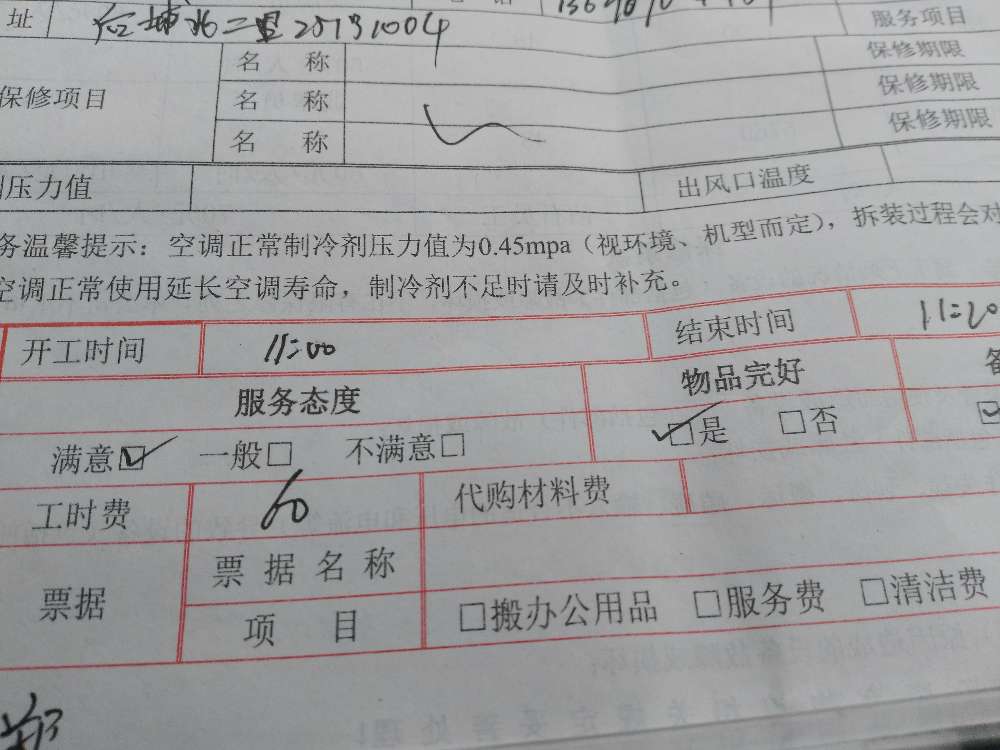 址 二里 2073 1004 服务项目
名 称 保修期限
保修项目 名 称 保修期限
名 称 保修期限
压力值 出风口温度
务温馨提示：空调正常制冷剂压力值为0.45mpa（视环境、机型而定），拆装过程会对
空调正常使用延长空调寿命，制冷剂不足时请及时补充。
开工时间 11:00 结束时间 11:20
服务态度 物品完好
满意☑ 一般□ 不满意□ ☑是 □否
工时费 60 代购材料费
票据 票据名称
项 目 □搬办公用品 □服务费 □清洁费